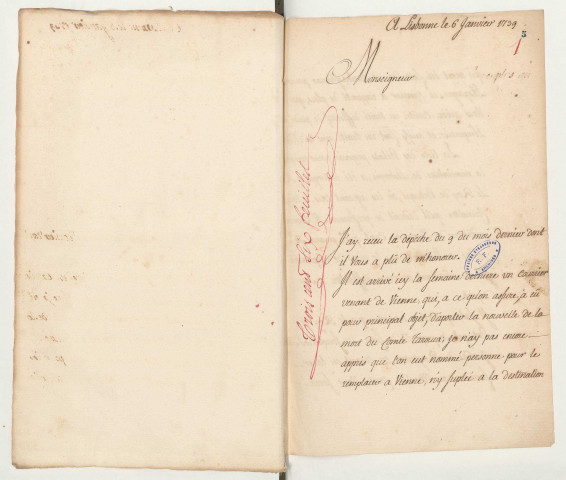 A Lisbonne le 6 Janvier 1739
Monseigneur
Trois cent six feuillets
J'ay receu la dépêche du 9 du mois dernier dont
il vous a plû de m'honorer.
Il est arrivé icy la semaine derniere un Courrier
venant de Vienne, qui, a ce qu'on assure, a eu
pour principal objet, d'aporter la nouvelle de la
mort du Comte Tarouca; je n'ay pas encore
appris que l'on eut nommé personne pour le
remplacer a Vienne, n'y suplée a la destination